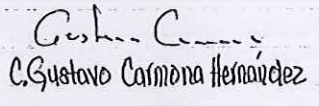 C. Gustavo Carmona Hernández